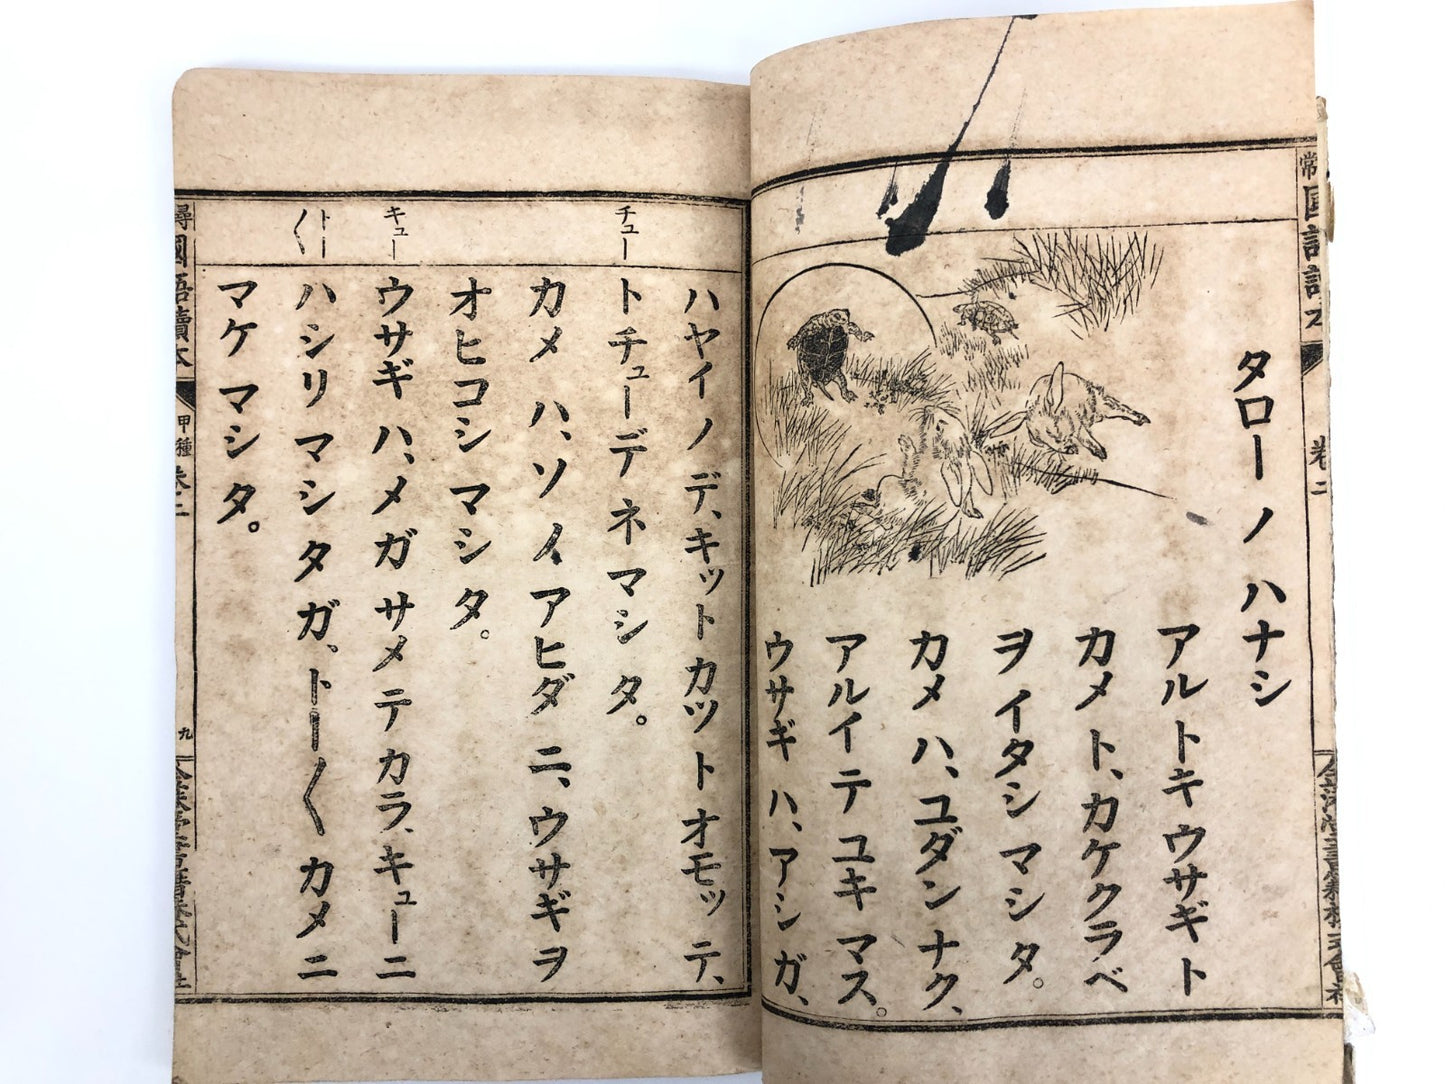 タロー ノ ハナシ
アルトキウサギト
カメト、カケクラベ
ヲイタシマシタ。
カメハ、ユダンナク、
アルイテユキマス。
ウサギハ、アシガ、
ハヤイノデ、キットカツトオモッテ、
トチューデネマシタ。
カメハ、ソノアヒダニ、ウサギヲ
オヒコシマシタ。
ウサギハ、メガサメテカラ、キューニ
ハシリマシタガ、トー〳〵カメニ
マケマシタ。
チュー
キュー
トー〳〵
尋
國語讀本
甲種 卷二
九
常
國語讀本
卷二